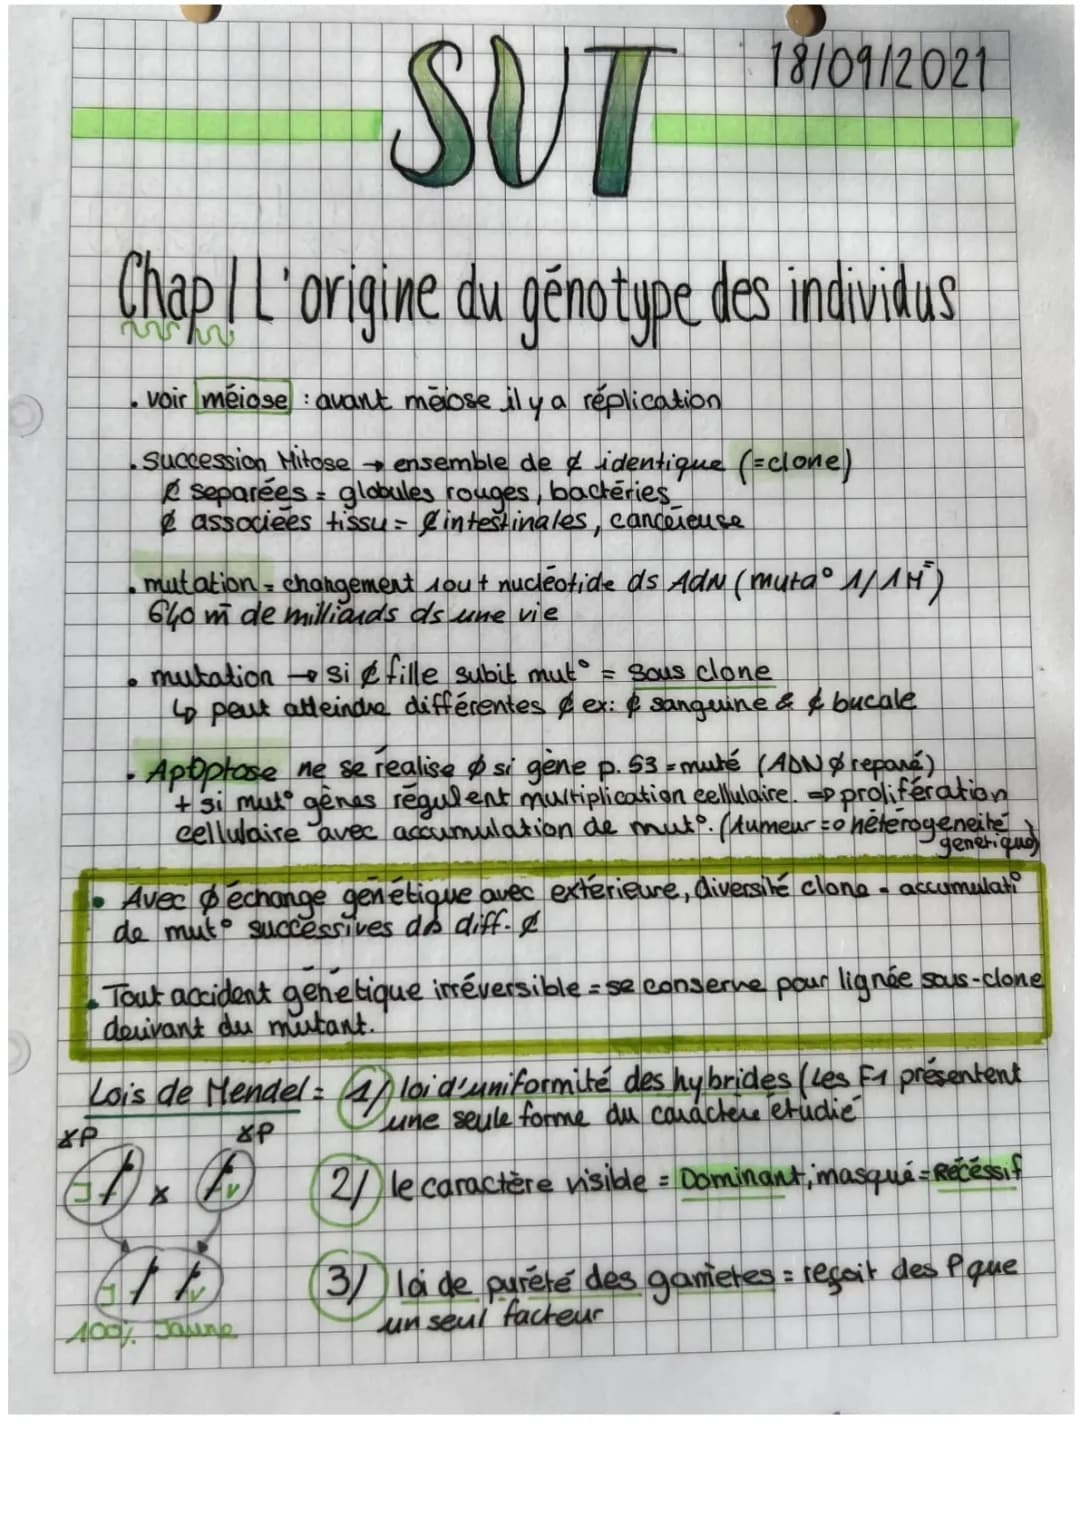 SVT
18/09/2021
Chap 1 L'origine du génotype des individus
. voir méiose : avant méiose il y a réplication
. succession Mitose → ensemble de ¢ identique (=clone)
¢ separées = globules rouges, bactéries
¢ associées tissu = ¢ intestinales, cancéreuse
. mutation = changement 1 ou + nucléotide ds ADN (muta° 1/1M)
640 m de milliards ds une vie
. mutation → si ¢ fille subit mut° = sous clone
↳ peut atteindre différentes ¢ ex: ¢ sanguine & ¢ bucale
. Apoptose ne se réalise ø si gène p.53 = muté (ADN ø reparé)
+ si mut° gènes régulent multiplication cellulaire. ⇒ prolifération
cellulaire avec accumulation de mut°. (tumeur = hétérogeneité
genetique)
• Avec ø échange génétique avec extérieure, diversité clone = accumulati°
de mut° successives ds diff. ¢
. Tout accident génétique irréversible = se conserve pour lignée sous-clone
derivant du mutant.
Lois de Mendel = 1/ loi d'uniformité des hybrides (Les F1 présentent
une seule forme du caractère étudié
♂P ♂P
J x V
2/ le caractère visible = Dominant, masqué = Récéssif
J V
100% Jaune
3/ loi de pureté des gametes = reçoit des P que
un seul facteur